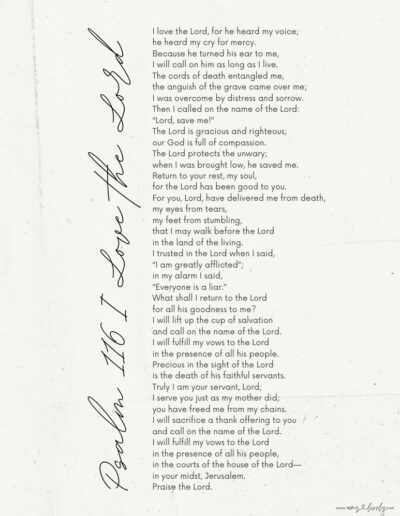 Psalm 116 I Love the Lord
I love the Lord, for he heard my voice;
he heard my cry for mercy.
Because he turned his ear to me,
I will call on him as long as I live.
The cords of death entangled me,
the anguish of the grave came over me;
I was overcome by distress and sorrow.
Then I called on the name of the Lord:
“Lord, save me!”
The Lord is gracious and righteous;
our God is full of compassion.
The Lord protects the unwary;
when I was brought low, he saved me.
Return to your rest, my soul,
for the Lord has been good to you.
For you, Lord, have delivered me from death,
my eyes from tears,
my feet from stumbling,
that I may walk before the Lord
in the land of the living.
I trusted in the Lord when I said,
“I am greatly afflicted”;
in my alarm I said,
“Everyone is a liar.”
What shall I return to the Lord
for all his goodness to me?
I will lift up the cup of salvation
and call on the name of the Lord.
I will fulfill my vows to the Lord
in the presence of all his people.
Precious in the sight of the Lord
is the death of his faithful servants.
Truly I am your servant, Lord;
I serve you just as my mother did;
you have freed me from my chains.
I will sacrifice a thank offering to you
and call on the name of the Lord.
I will fulfill my vows to the Lord
in the presence of all his people,
in the courts of the house of the Lord—
in your midst, Jerusalem.
Praise the Lord.